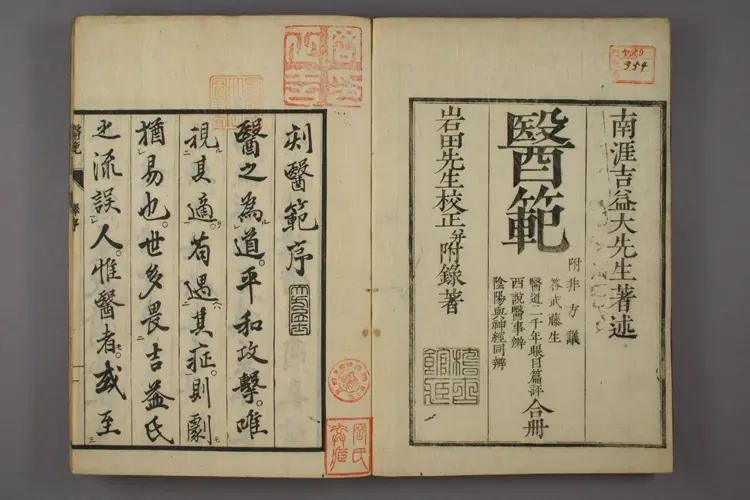 南涯吉益大先生著述
醫範
附非方議
答武藤生
醫道二千年眼目篇評
西説醫事辨
陰陽與神經同辨
合册
岩田先生校正并附錄著
954
刻醫範序
醫之為道。平和攻擊。唯
視其適。苟遇其症。則劇
猶易也。世多畏吉益氏
之流誤人。惟醫者。或至
醫範